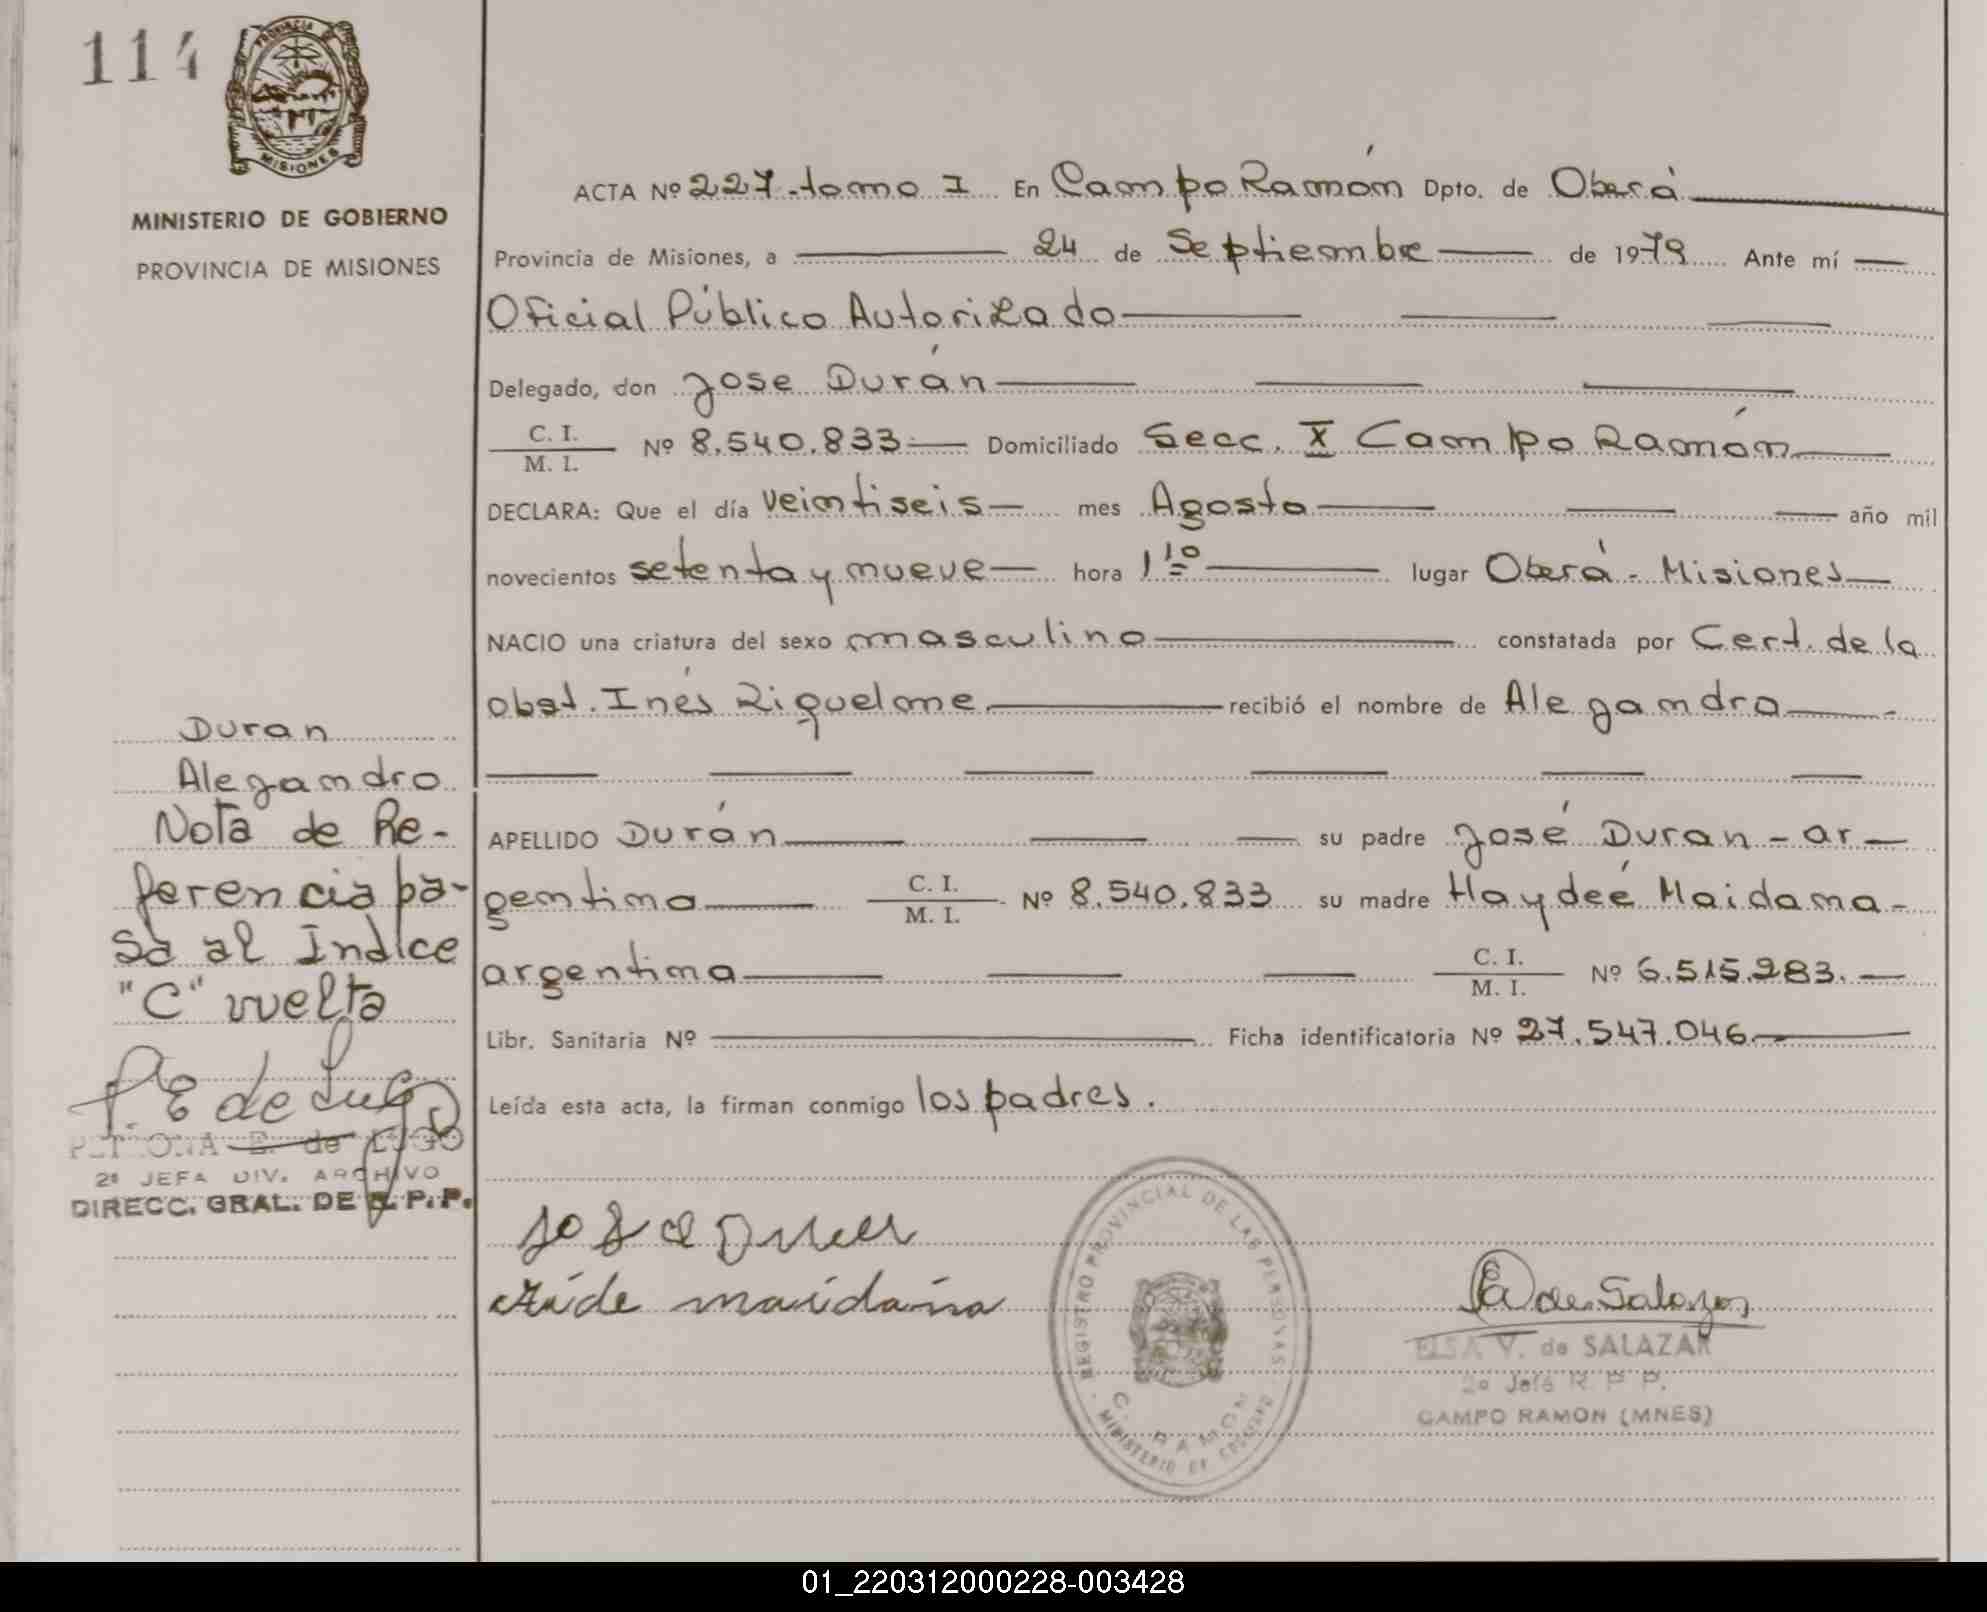 114
PROVINCIA DE
MISIONES
MINISTERIO DE GOBIERNO
PROVINCIA DE MISIONES
ACTA Nº 227-tomo I En Campo Ramón Dpto. de Oberá
Provincia de Misiones, a 24 de Septiembre de 1979 Ante mí
Oficial Público Autorizado
Delegado, don José Durán
C. I.
M. I.
Nº 8.540.833 Domiciliado Secc. X Campo Ramón
DECLARA: Que el día veintiseis mes Agosto año mil
novecientos setenta y nueve hora 1 10 lugar Oberá - Misiones
NACIO una criatura del sexo masculino constatada por Cert. de la
obst. Inés Riquelme recibió el nombre de Alejandro
APELLIDO Durán su padre José Duran - ar-
gentino C. I.
M. I.
Nº 8.540.833 su madre Haydeé Maidana-
argentina C. I.
M. I.
Nº 6.515.983.
Libr. Sanitaria Nº Ficha identificatoria Nº 27.547.046
Leída esta acta, la firman conmigo los padres.
Duran
Alejandro
Nota de Re-
ferencia pa-
sa al Indice
"C" vuelta
E de Lugo
E. de LUGO
2ª JEFA DIV. ARCHIVO
DIRECC. GRAL. DE R. P. P.
maidana
REGISTRO PROVINCIAL DE LAS PERSONAS
C. RAMON
MINISTERIO DE GOBIERNO
de Salazar
ELSA V. de SALAZAR
2º Jefe R. P. P.
CAMPO RAMON (MNES)
01_220312000228-003428